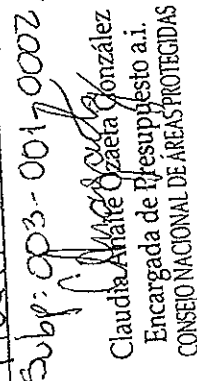 Subp: 003-001-0002
Claudia Anaité Ozaeta González
Encargada de Presupuesto a.i.
CONSEJO NACIONAL DE ÁREAS PROTEGIDAS